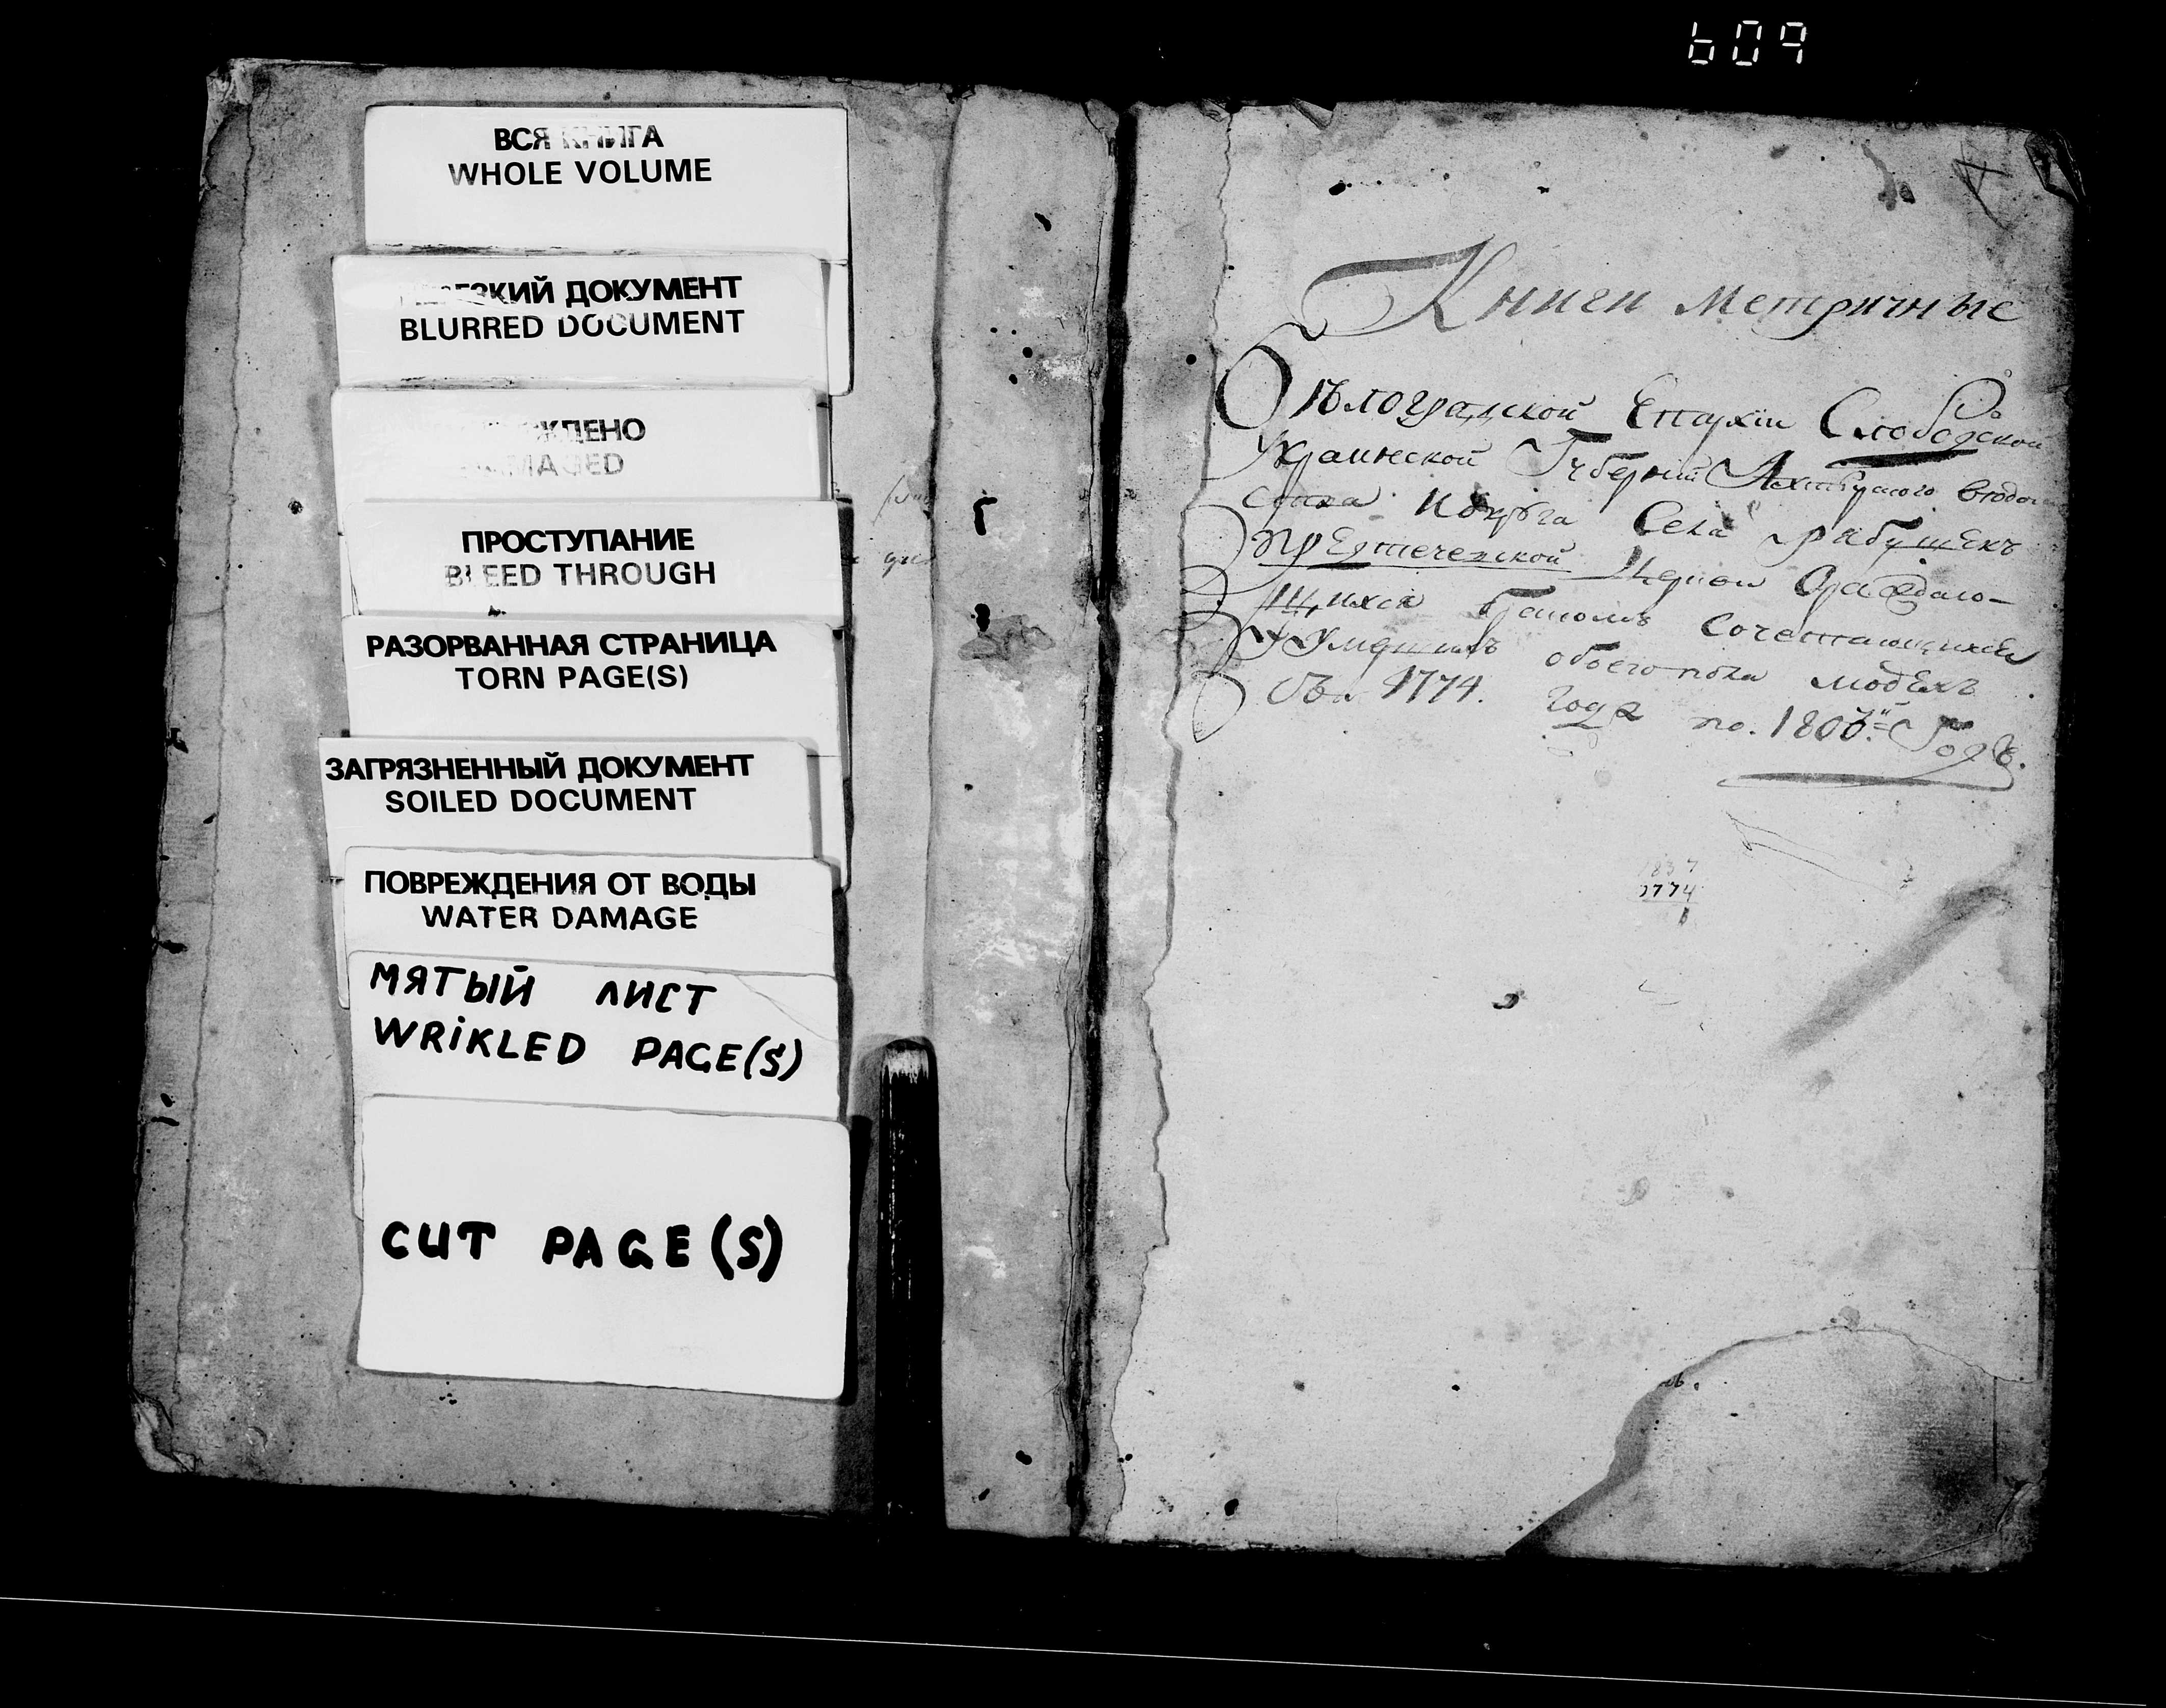 609
ВСЯ КНИГА
WHOLE VOLUME
ДОКУМЕНТ
BLURRED DOCUMENT
ПРОСТУПАНИЕ
BLEED THROUGH
РАЗОРВАННАЯ СТРАНИЦА
TORN PAGE(S)
ЗАГРЯЗНЕННЫЙ ДОКУМЕНТ
SOILED DOCUMENT
ПОВРЕЖДЕНИЯ ОТ ВОДЫ
WATER DAMAGE
МЯТЫЙ ЛИСТ
WRIKLED PAGE(S)
CUT PAGE(S)
Книги метричные
Бѣлоградской Епархіи Слободской
Украинской Губерніи
Села Рабушекъ
Предтечевской Церкви Ораждаю-
щихся Сочетающихся
Умершихъ обоего пола людехъ
1774. Года по. 1806. Годъ.
1837
1774